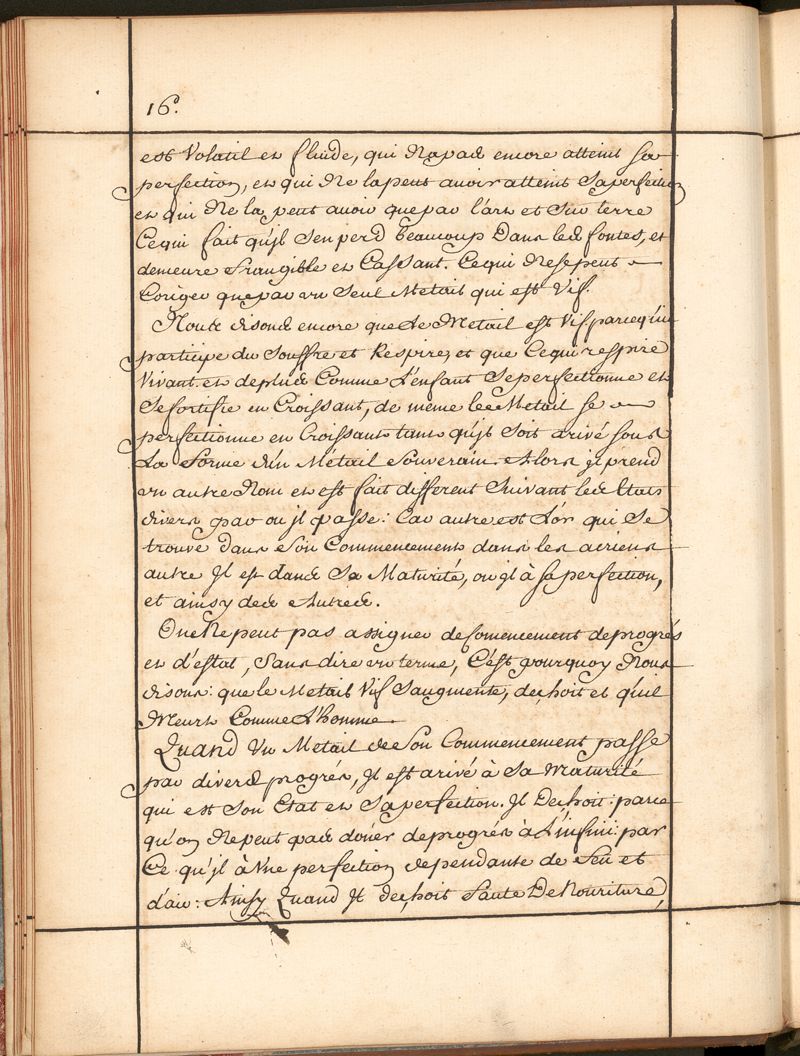 16.
est Volatil et fluide, qui N'apas encore atteint sa
perfection, et qui Ne la peut avoir atteint Saperfection
et qui Ne la peut avoir quepar l'art et Sur terre
Cequi fait qu'jl Sen perd beaucoup Dans les fontes, et
demeure frangible et Cassant. Cequi Nesepeut
Coriger quepar un Seul Metail qui est Vif.
Nous disons encore que le Metail est Vif parcequ'il
participe du Souffre et Respire, et que Cequi respire
Vivant. et deplus Comme L'enfant Seperfectionne et
Sefortifie en Croissant, de meme les Metail se
perfectionne en Croissant tant qu'jl soit arivé sous
La Forme d'un Métail Souverain. Alors jl prend
un autre Nom et est fait different Suivant les Etats
divers par ou jl passe: Car autre est L'or qui Se
trouve dans Son Commencement dans les aeriens
autre Jl est dans Sa Maturité, ou jl à sa perfection,
et ainsy des Autres.
One Nepeut pas assigner de Comencement deprogrés
et d'estat, Sans dire un terme, C'est pourquoy Nous
disons: que le Metail Vif Saugmente, dechoit et qu'il
Meurt Comme L'homme.
Quand Un Metail de Son Commencement passe
par divers progrés, Jl est arivé à Sa Maturité
qui est Son Etat et Saperfection. Jl Dechoit: parce
qu'on Nepeut pas doner deprogrés à L'infini: par
Ce qu'jl à Une perfection dependante de feu et
d'air: Ainsy Quand Jl dechoit faute De Nouriture,